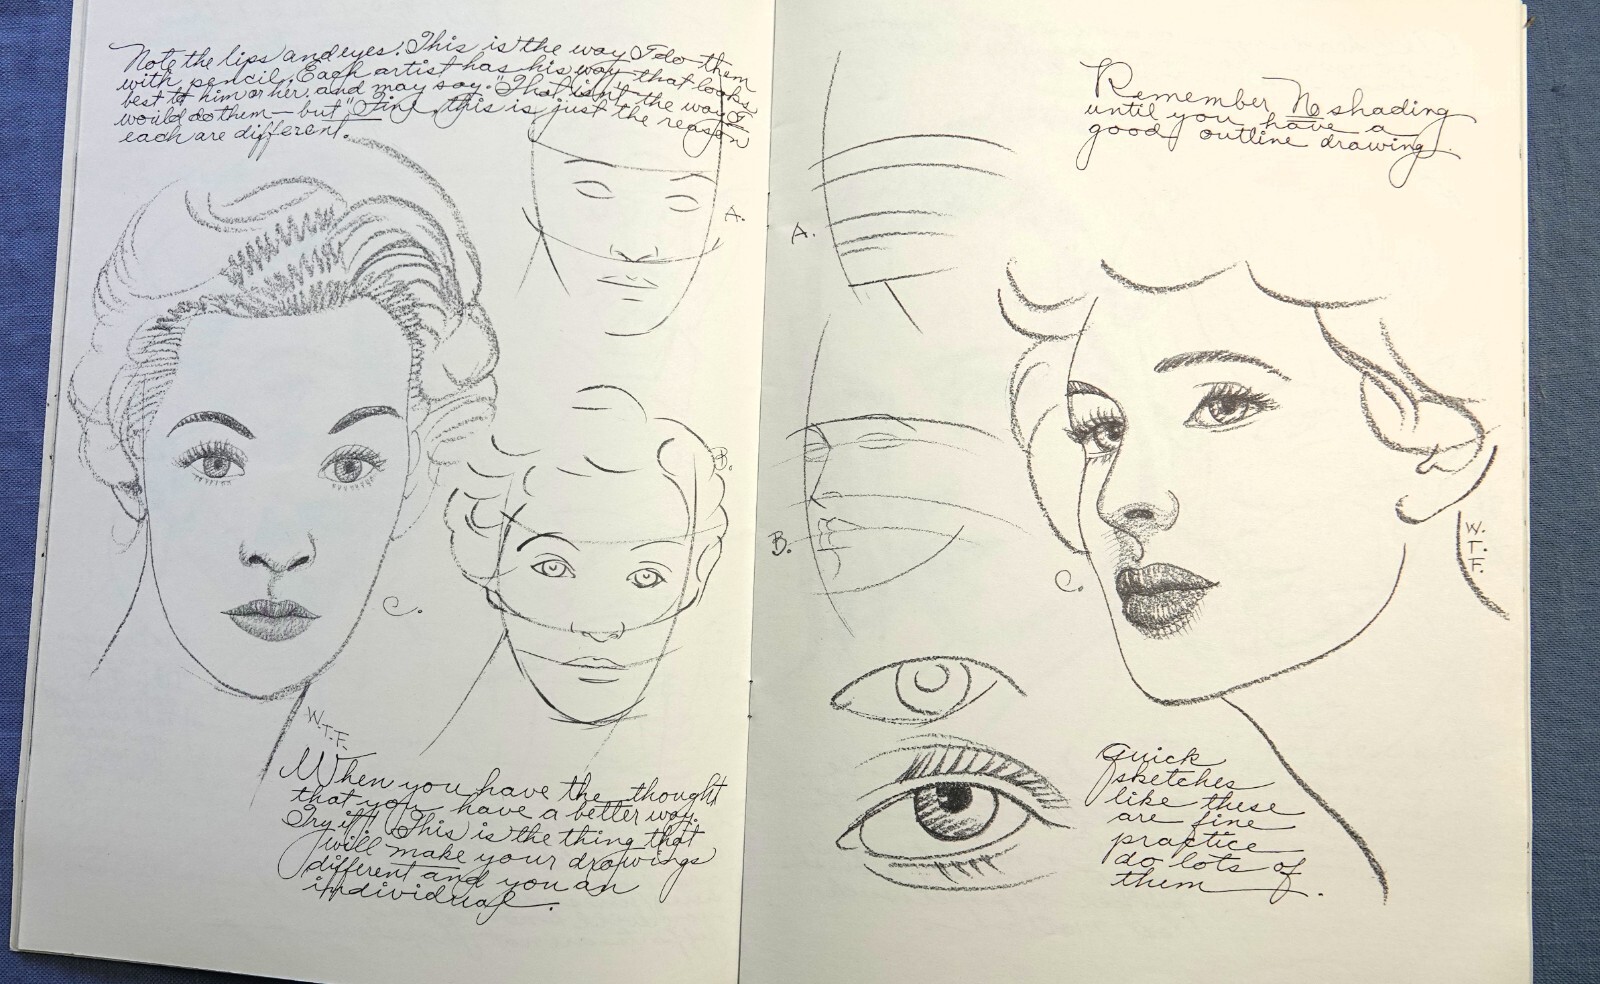 Note the lips and eyes. This is the way I do them
with pencil. Each artist has his way that looks
best to him or her, and may say. "That isn't the way I
would do them — but "Fine, this is just the reason
each are different.
A.
B.
C.
W.T.F.
When you have the thought
that you have a better way.
Try it! This is the thing that
will make your drawings
different and you an
individual.
Remember, No shading
until you have a
good outline drawing.
A.
B.
C.
W.
T.
F.
Quick
sketches
like these
are fine
practice
do lots of
them.